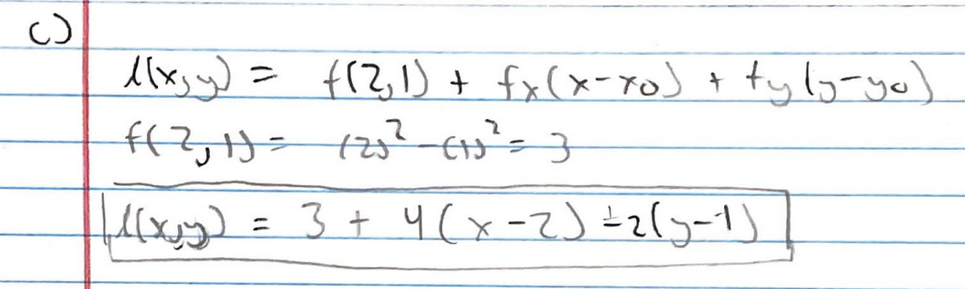 c)
l(x,y) = f(2,1) + fx(x-x0) + fy(y-y0)
f(2,1) = (2)² - (1)² = 3
l(x,y) = 3 + 4(x-2) ± 2(y-1)